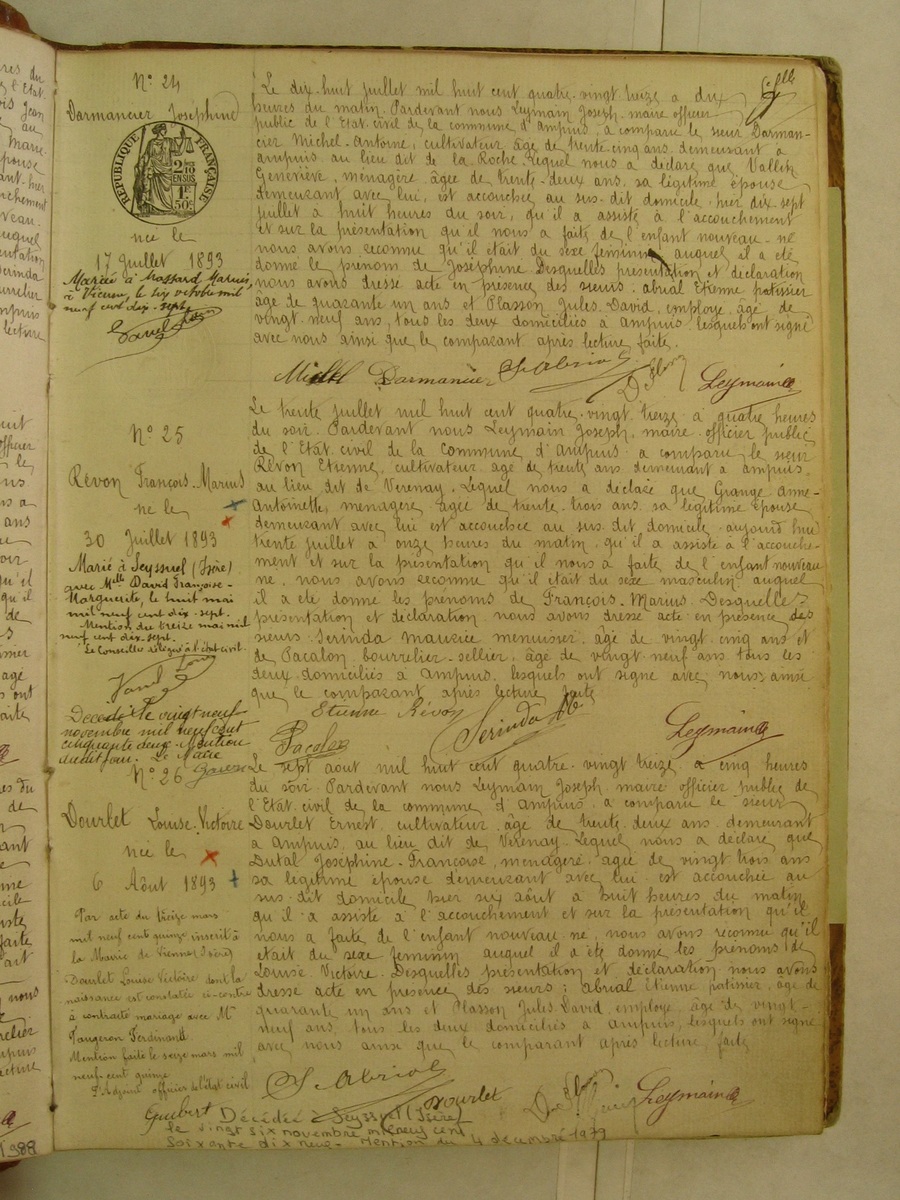 N° 24
Darmancier Joséphine
RÉPUBLIQUE FRANÇAISE
2/10 EN SUS
1F. 50c.
née le
17 Juillet 1893
Mariée à Mossard Marius,
à Vienne, le six octobre mil
neuf cent dix-sept
Le dix-huit juillet mil huit cent quatre-vingt treize a dix
heures du matin. Pardevant nous Leymain Joseph maire officier
public de l'Etat civil de la commune d'Ampuis, a comparu le sieur Darman-
cier Michel-Antoine, cultivateur âgé de trente-cinq ans, demeurant à
Ampuis au lieu dit de la Roche, lequel nous a déclaré que Vallin
Geneviève, ménagère, âgée de trente-deux ans, sa légitime épouse
demeurant avec lui, est accouchée au sus-dit domicile, hier dix-sept
juillet à huit heures du soir, qu'il a assisté à l'accouchement
et sur la présentation qu'il nous a faite de l'enfant nouveau-né
nous avons reconnu qu'il était du sexe féminin auquel il a été
donné le prénom de Joséphine. Desquelles présentation et déclaration
nous avons dressé acte en présence des sieurs: Abrial Etienne patissier
âgé de quarante un ans et Plasson Jules David, employé, âgé de
vingt-neuf ans, tous les deux domiciliés à Ampuis, lesquels ont signé
avec nous ainsi que le comparant après lecture faite.
Michel Darmancier Abrial Leymain
N° 25
Révon François-Marius
né le
30 Juillet 1893
Marié à Seyssuel (Isère)
avec Mlle David Françoise-
Marguerite, le huit mai
mil neuf cent dix-sept.
Mention du treize mai mil
neuf cent dix-sept.
Le Conseiller délégué à l'état-civil.
Décédé le vingt neuf
novembre mil neuf cent
cinquante deux. Mention
dudit jour. Le Maire
Le trente juillet mil huit cent quatre-vingt treize à quatre heures
du soir. Pardevant nous Leymain Joseph, maire officier public
de l'Etat civil de la commune d'Ampuis a comparu le sieur
Révon Etienne, cultivateur âgé de trente ans demeurant à Ampuis,
au lieu dit de Verenay. Lequel nous a déclaré que Grange Anne-
Antoinette, ménagère âgée de trente-trois ans, sa légitime épouse
demeurant avec lui est accouchée au sus-dit domicile aujourd'hui
trente juillet à onze heures du matin, qu'il a assisté à l'accouche-
ment et sur la présentation qu'il nous a faite de l'enfant nouveau
né, nous avons reconnu qu'il était du sexe masculin auquel
il a été donné les prénoms de François-Marius. Desquelles
présentation et déclaration nous avons dressé acte en présence des
sieurs Serinda Maurice menuisier, âgé de vingt cinq ans et
de Pacalon, bourrelier-sellier, âgé de vingt-neuf ans tous les
deux domiciliés à Ampuis, lesquels ont signé avec nous ainsi
que le comparant après lecture faite
Etienne Révon Serinda
Pacalon Leymain
N° 26
Dourlet Louise-Victoire
née le
6 Août 1893
Par acte du treize mars
mil neuf cent quinze inscrit à
la Mairie de Vienne (Isère)
Dourlet Louise Victoire dont la
naissance est constatée ci-contre
à contracté mariage avec Mr
Faugeron Ferdinand.
Mention faite le seize mars mil
neuf-cent quinze
L'Adjoint officier de l'état civil
Guibert
Le sept aout mil huit cent quatre-vingt treize, a cinq heures
du soir. Pardevant nous Leymain Joseph maire officier public de
l'Etat civil de la commune d'Ampuis a comparu le sieur
Dourlet Ernest, cultivateur âgé de trente deux ans, demeurant
à Ampuis, au lieu dit de Verenay. Lequel nous a déclaré que
Dutal Joséphine-Françoise, ménagère, âgée de vingt trois ans
sa légitime épouse demeurant avec lui est accouchée au
sus-dit domicile hier six août à huit heures du matin
qu'il a assisté à l'accouchement et sur la présentation qu'il
nous a faite de l'enfant nouveau-né, nous avons reconnu qu'il
était du sexe féminin auquel il a été donné les prénoms de
Louise-Victoire. Desquelles présentation et déclaration nous avons
dressé acte en présence des sieurs: Abrial Etienne patissier, âgé de
quarante un ans et Plasson Jules David, employé, âgé de vingt-
neuf ans, tous les deux domiciliés à Ampuis, lesquels ont signé
avec nous ainsi que le comparant après lecture faite
Abrial Dourlet Leymain
Décédée à Seyssuel (Isère)
le vingt six novembre mil neuf cent
soixante dix neuf - Mention du 4 décembre 1979